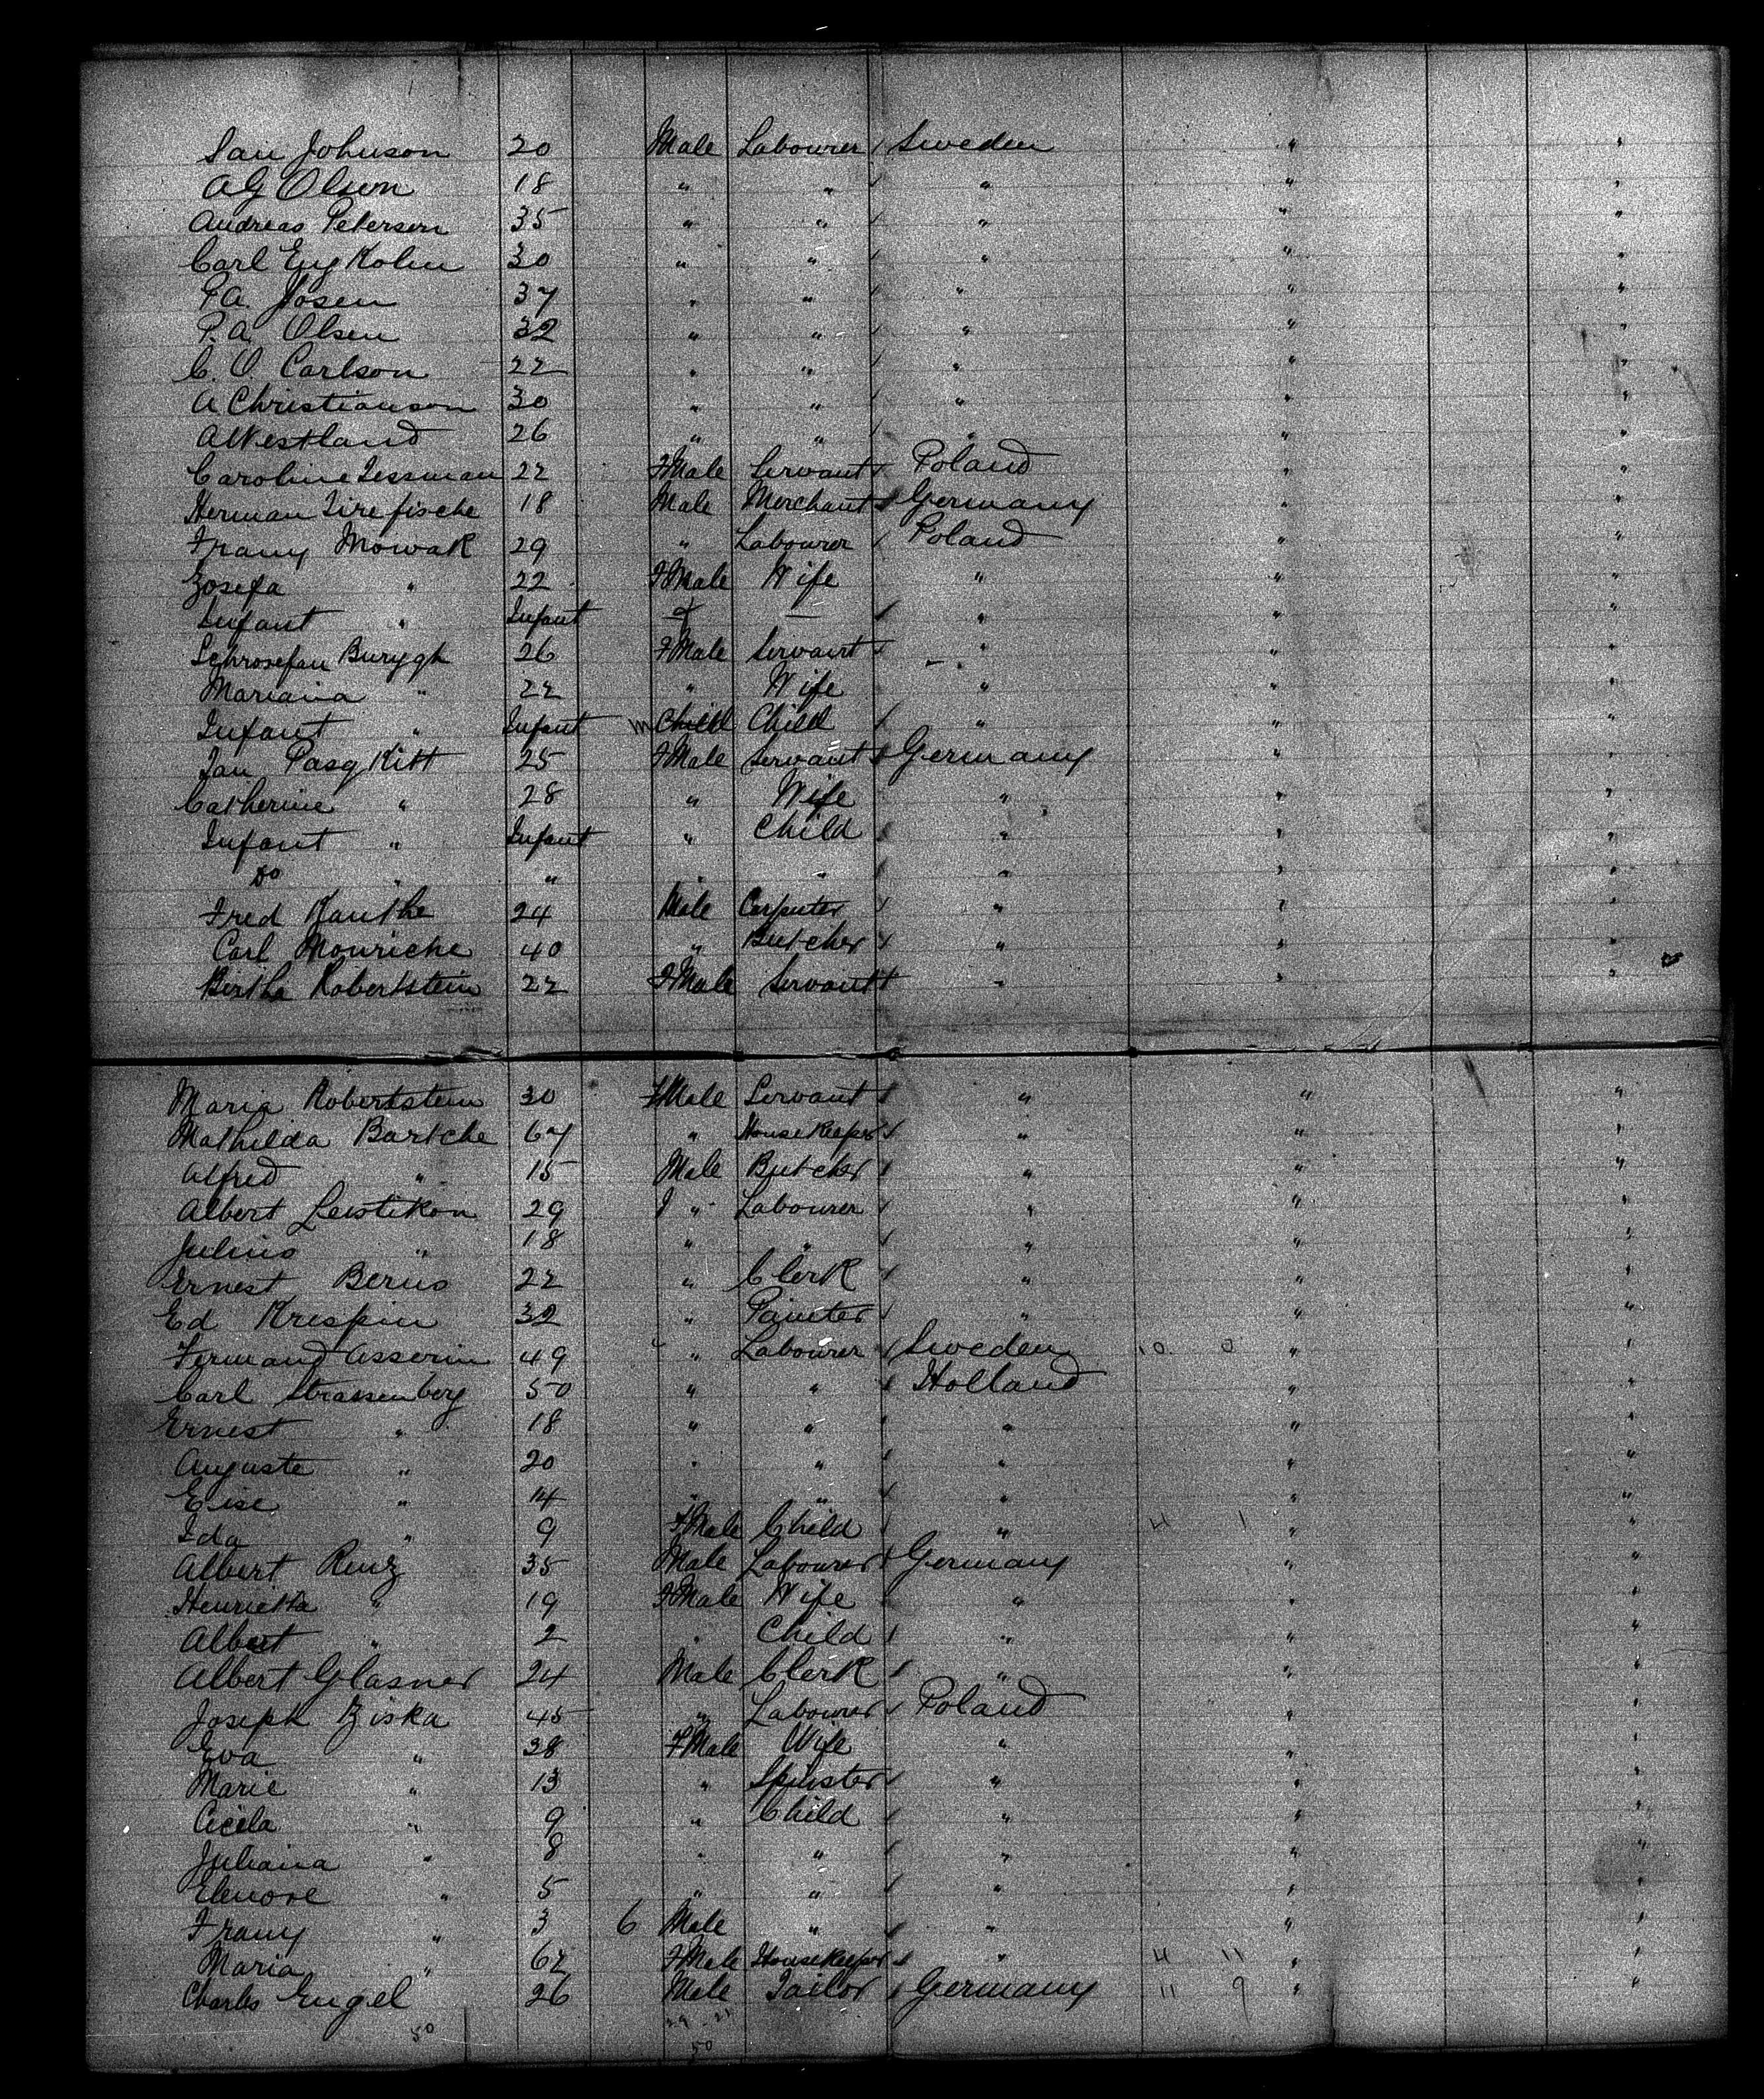 Jan Johnson 20 Male Labourer Sweden " "
A G Olson 18 " " " " "
Andreas Peterson 35 " " " " "
Carl Eug Kolm 30 " " " " "
P.A. Josen 37 " " " " "
P.A. Olsen 32 " " " " "
C. O Carlson 22 " " " " "
A Christianson 30 " " " " "
A Westland 26 " " " " "
Caroline Tessman 22 FMale Servant Poland " "
Herman Zirefische 18 Male Merchant Germany " "
Frany Mowak 29 " Labourer Poland " "
Zosefa " 22 FMale Wife " " "
Infant " Infant f — " " "
Burygh 26 FMale Servant " " "
Mariana " 22 " Wife " " "
Infant " Infant m Child Child " " "
Jan Pasg Kitt 25 FMale Servant Germany " "
Catherine " 28 " Wife " " "
Infant " Infant " Child " " "
Do " " " " " " "
Fred Kanthe 24 Male Carpenter " " "
Carl Mouriche 40 " Butcher " " "
Birtha Robertstein 22 FMale Servant " " "
Maria Robertstein 30 FMale Servant " " "
Mathilda Bartche 67 " HouseKeeper " " "
Alfred " 15 Male Butcher " " "
Albert Leistikon 29 " Labourer " " "
Julius " 18 " " " " "
Ernest Berus 22 " Clerk " " "
Ed Krespin 32 " Painter " " "
Fermand Asserin 49 " Labourer Sweden 10 0 " "
Carl Strassenberg 50 " " Holland " "
Ernest " 18 " " " " "
Auguste " 20 " " " " "
Eise " 14 " " " " "
Ida " 9 FMale Child " 4 1 " "
Albert Renz 35 Male Labourer Germany " "
Henrietta " 19 FMale Wife " " "
Albert " 2 " Child " " "
Albert Glasner 24 Male Clerk " " "
Joseph Ziska 45 " Labourer Poland " "
Eva " 38 FMale Wife " " "
Marie " 13 " Spinster " " "
Cicila " 9 " Child " " "
Juliana " 8 " " " " "
Elenore " 5 " " " " "
Frany " 3 6 Male " " " "
Maria " 62 FMale HouseKeeper " 4 11 " "
Charles Engel 26 Male Tailor Germany 11 9 " "
50 29 - 21
50